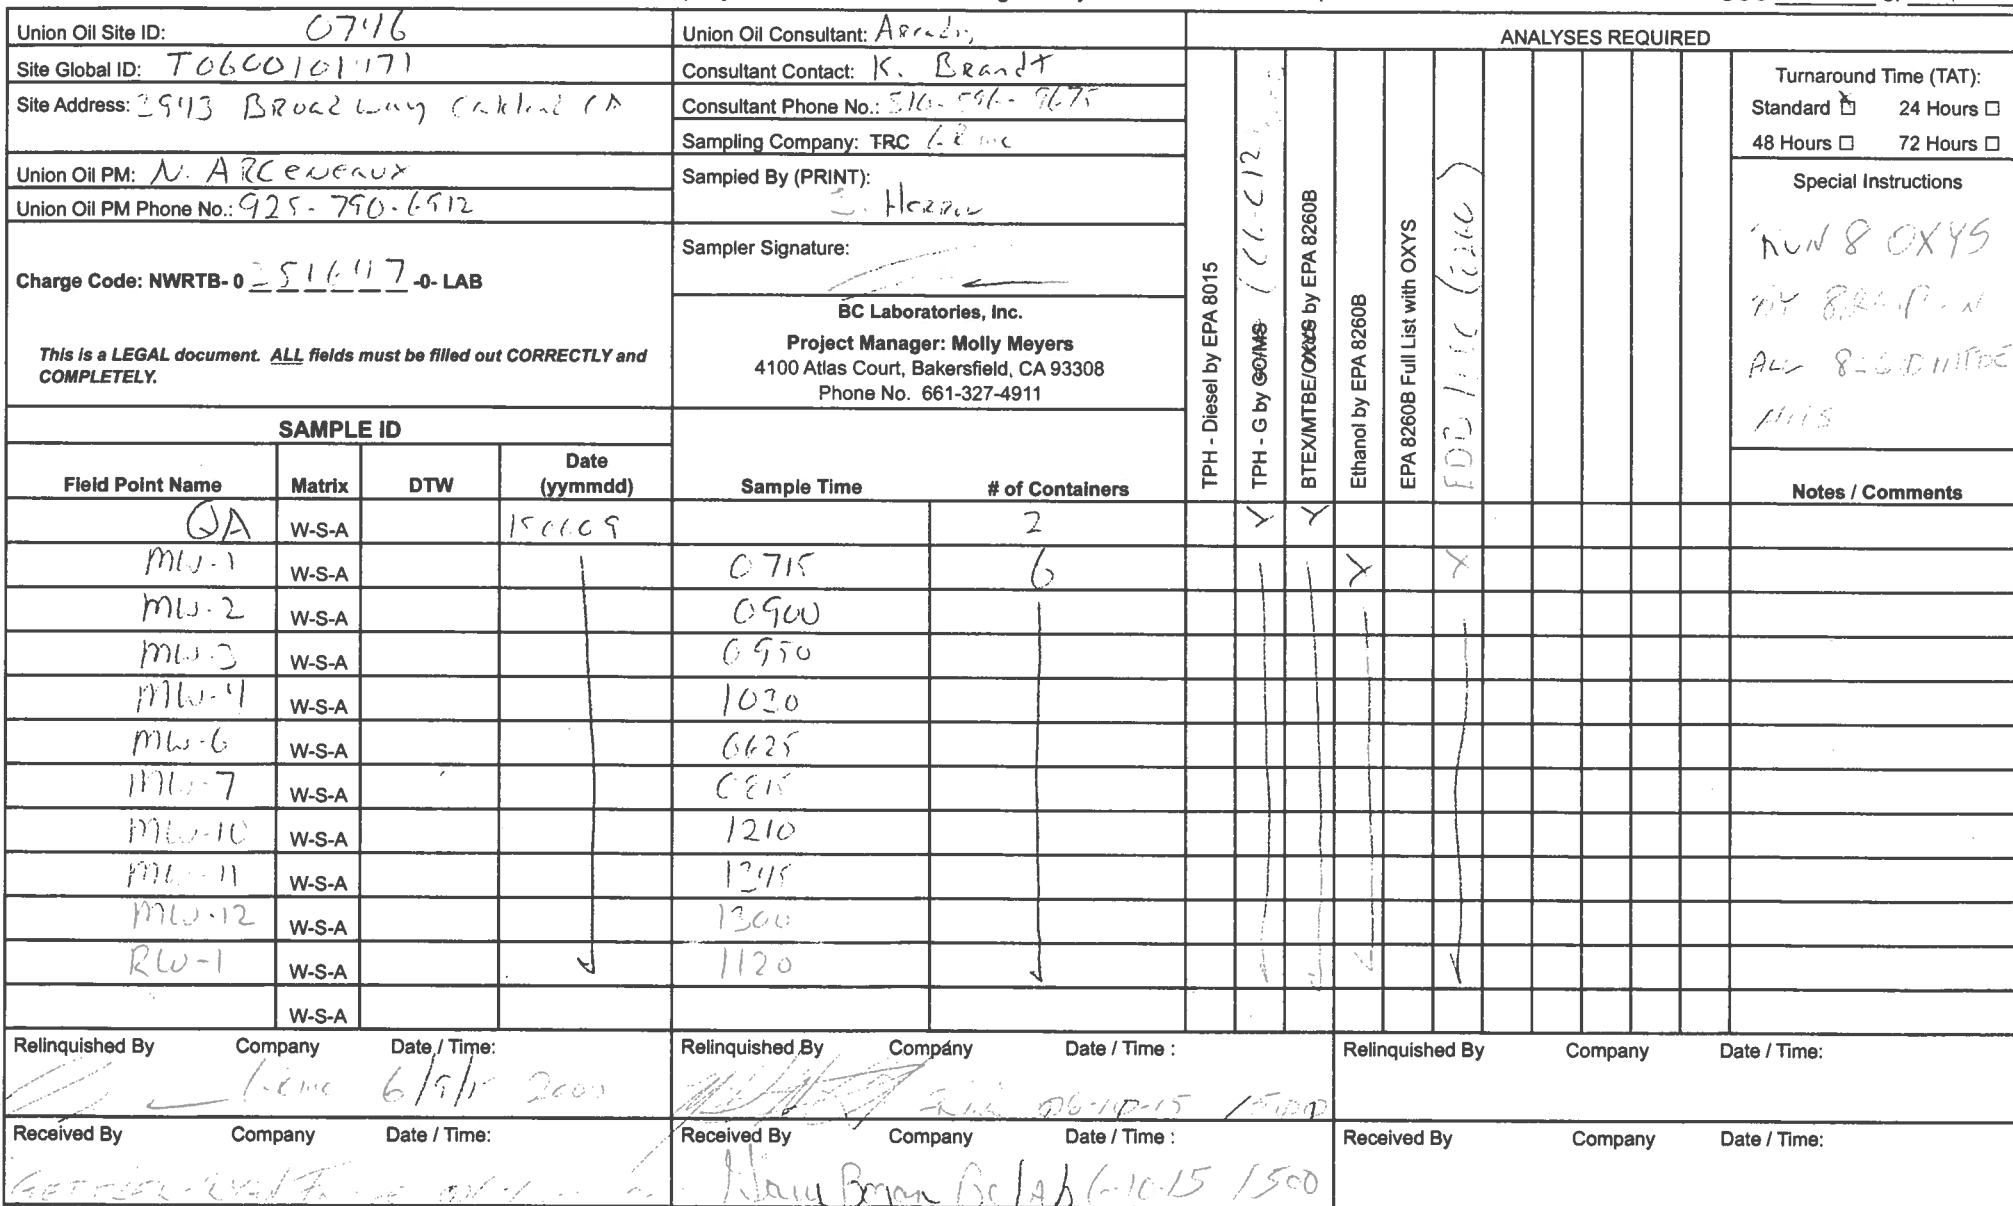 Union Oil Site ID: 0746
Site Global ID: T0600101171
Site Address: 2943 Broadway Oakland CA
Union Oil PM: N. Arceneaux
Union Oil PM Phone No.: 925-790-6912
Charge Code: NWRTB- 0 351647 -0- LAB
This is a LEGAL document. ALL fields must be filled out CORRECTLY and
COMPLETELY.
Union Oil Consultant: Arcadis
Consultant Contact: K. Brandt
Consultant Phone No.: 510-596-9675
Sampling Company: TRC
Sampled By (PRINT):
Herron
Sampler Signature:
BC Laboratories, Inc.
Project Manager: Molly Meyers
4100 Atlas Court, Bakersfield, CA 93308
Phone No. 661-327-4911
ANALYSES REQUIRED
TPH - Diesel by EPA 8015
TPH - G by GC/MS (C6-C12
BTEX/MTBE/OXYS by EPA 8260B
Ethanol by EPA 8260B
EPA 8260B Full List with OXYS
Turnaround Time (TAT):
Standard ☒ 24 Hours ☐
48 Hours ☐ 72 Hours ☐
Special Instructions
RUN 8 OXYS
ALL 8260 MTBE
HITS
SAMPLE ID
Field Point Name Matrix DTW Date (yymmdd) Sample Time # of Containers Notes / Comments
QA W-S-A 150609 2 X X
MW-1 W-S-A 0715 6 X X
MW-2 W-S-A 0900
MW-3 W-S-A 0950
MW-4 W-S-A 1030
MW-6 W-S-A 0625
MW-7 W-S-A 0815
MW-10 W-S-A 1210
MW-11 W-S-A 1345
MW-12 W-S-A 1300
RW-1 W-S-A 1120
W-S-A
Relinquished By Company Date / Time:
6/9/15 2000
Relinquished By Company Date / Time :
06-10-15 1500
Relinquished By Company Date / Time:
Received By Company Date / Time:
Received By Company Date / Time :
BC Lab 6-10-15 1500
Received By Company Date / Time: